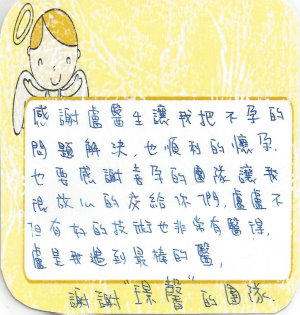 感謝盧醫生讓我把不孕的
問題解決，也順利的懷孕.
也要感謝喜孕的團隊讓我
很放心的交給你們，盧盧不
但有好的技術也非常有醫德，
盧是我遇到最棒的醫，
謝謝"璟馨"的團隊.